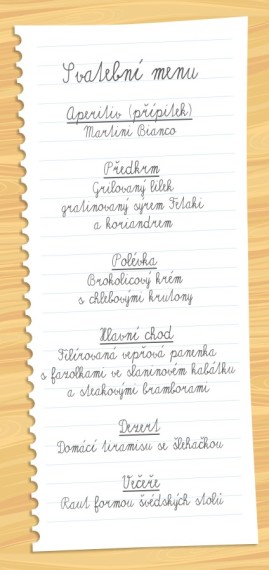 Svatební menu
Aperitiv (přípitek)
Martini Bianco
Předkrm
Grilovaný lilek
gratinovaný sýrem Fetaki
a koriandrem
Polévka
Brokolicový krém
s chlebovými krutony
Hlavní chod
Filírovaná vepřová panenka
s fazolkami ve slaninovém kabátku
a steakovými bramborami
Dezert
Domácí tiramisu se šlehačkou
Večeře
Raut formou švédských stolů